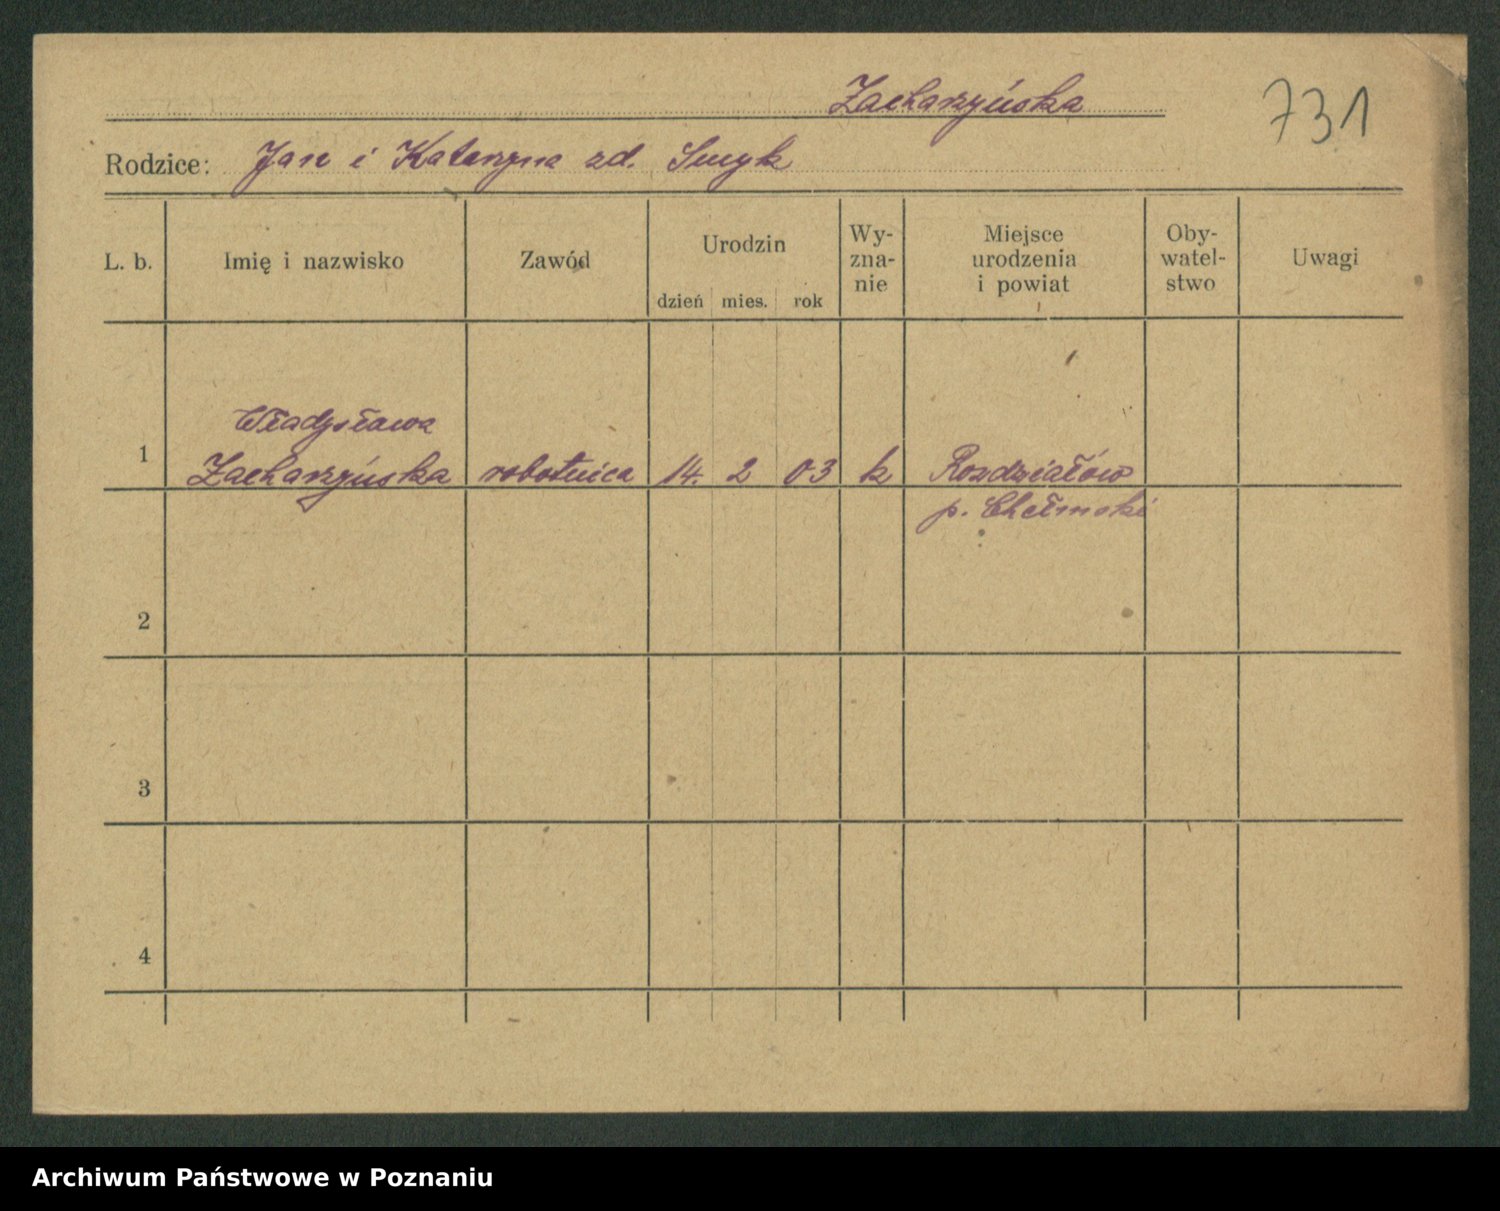 Zacharzyńska
731
Rodzice: Jan i Katarzyna zd. Smyk
L. b.
Imię i nazwisko
Zawód
Urodzin
dzień mies. rok
Wy-
zna-
nie
Miejsce
urodzenia
i powiat
Oby-
watel-
stwo
Uwagi
Władysława
1 Zacharzyńska robotnica 14. 2 03 k Rozdziałów
p. Chełmski
2
3
4
Archiwum Państwowe w Poznaniu